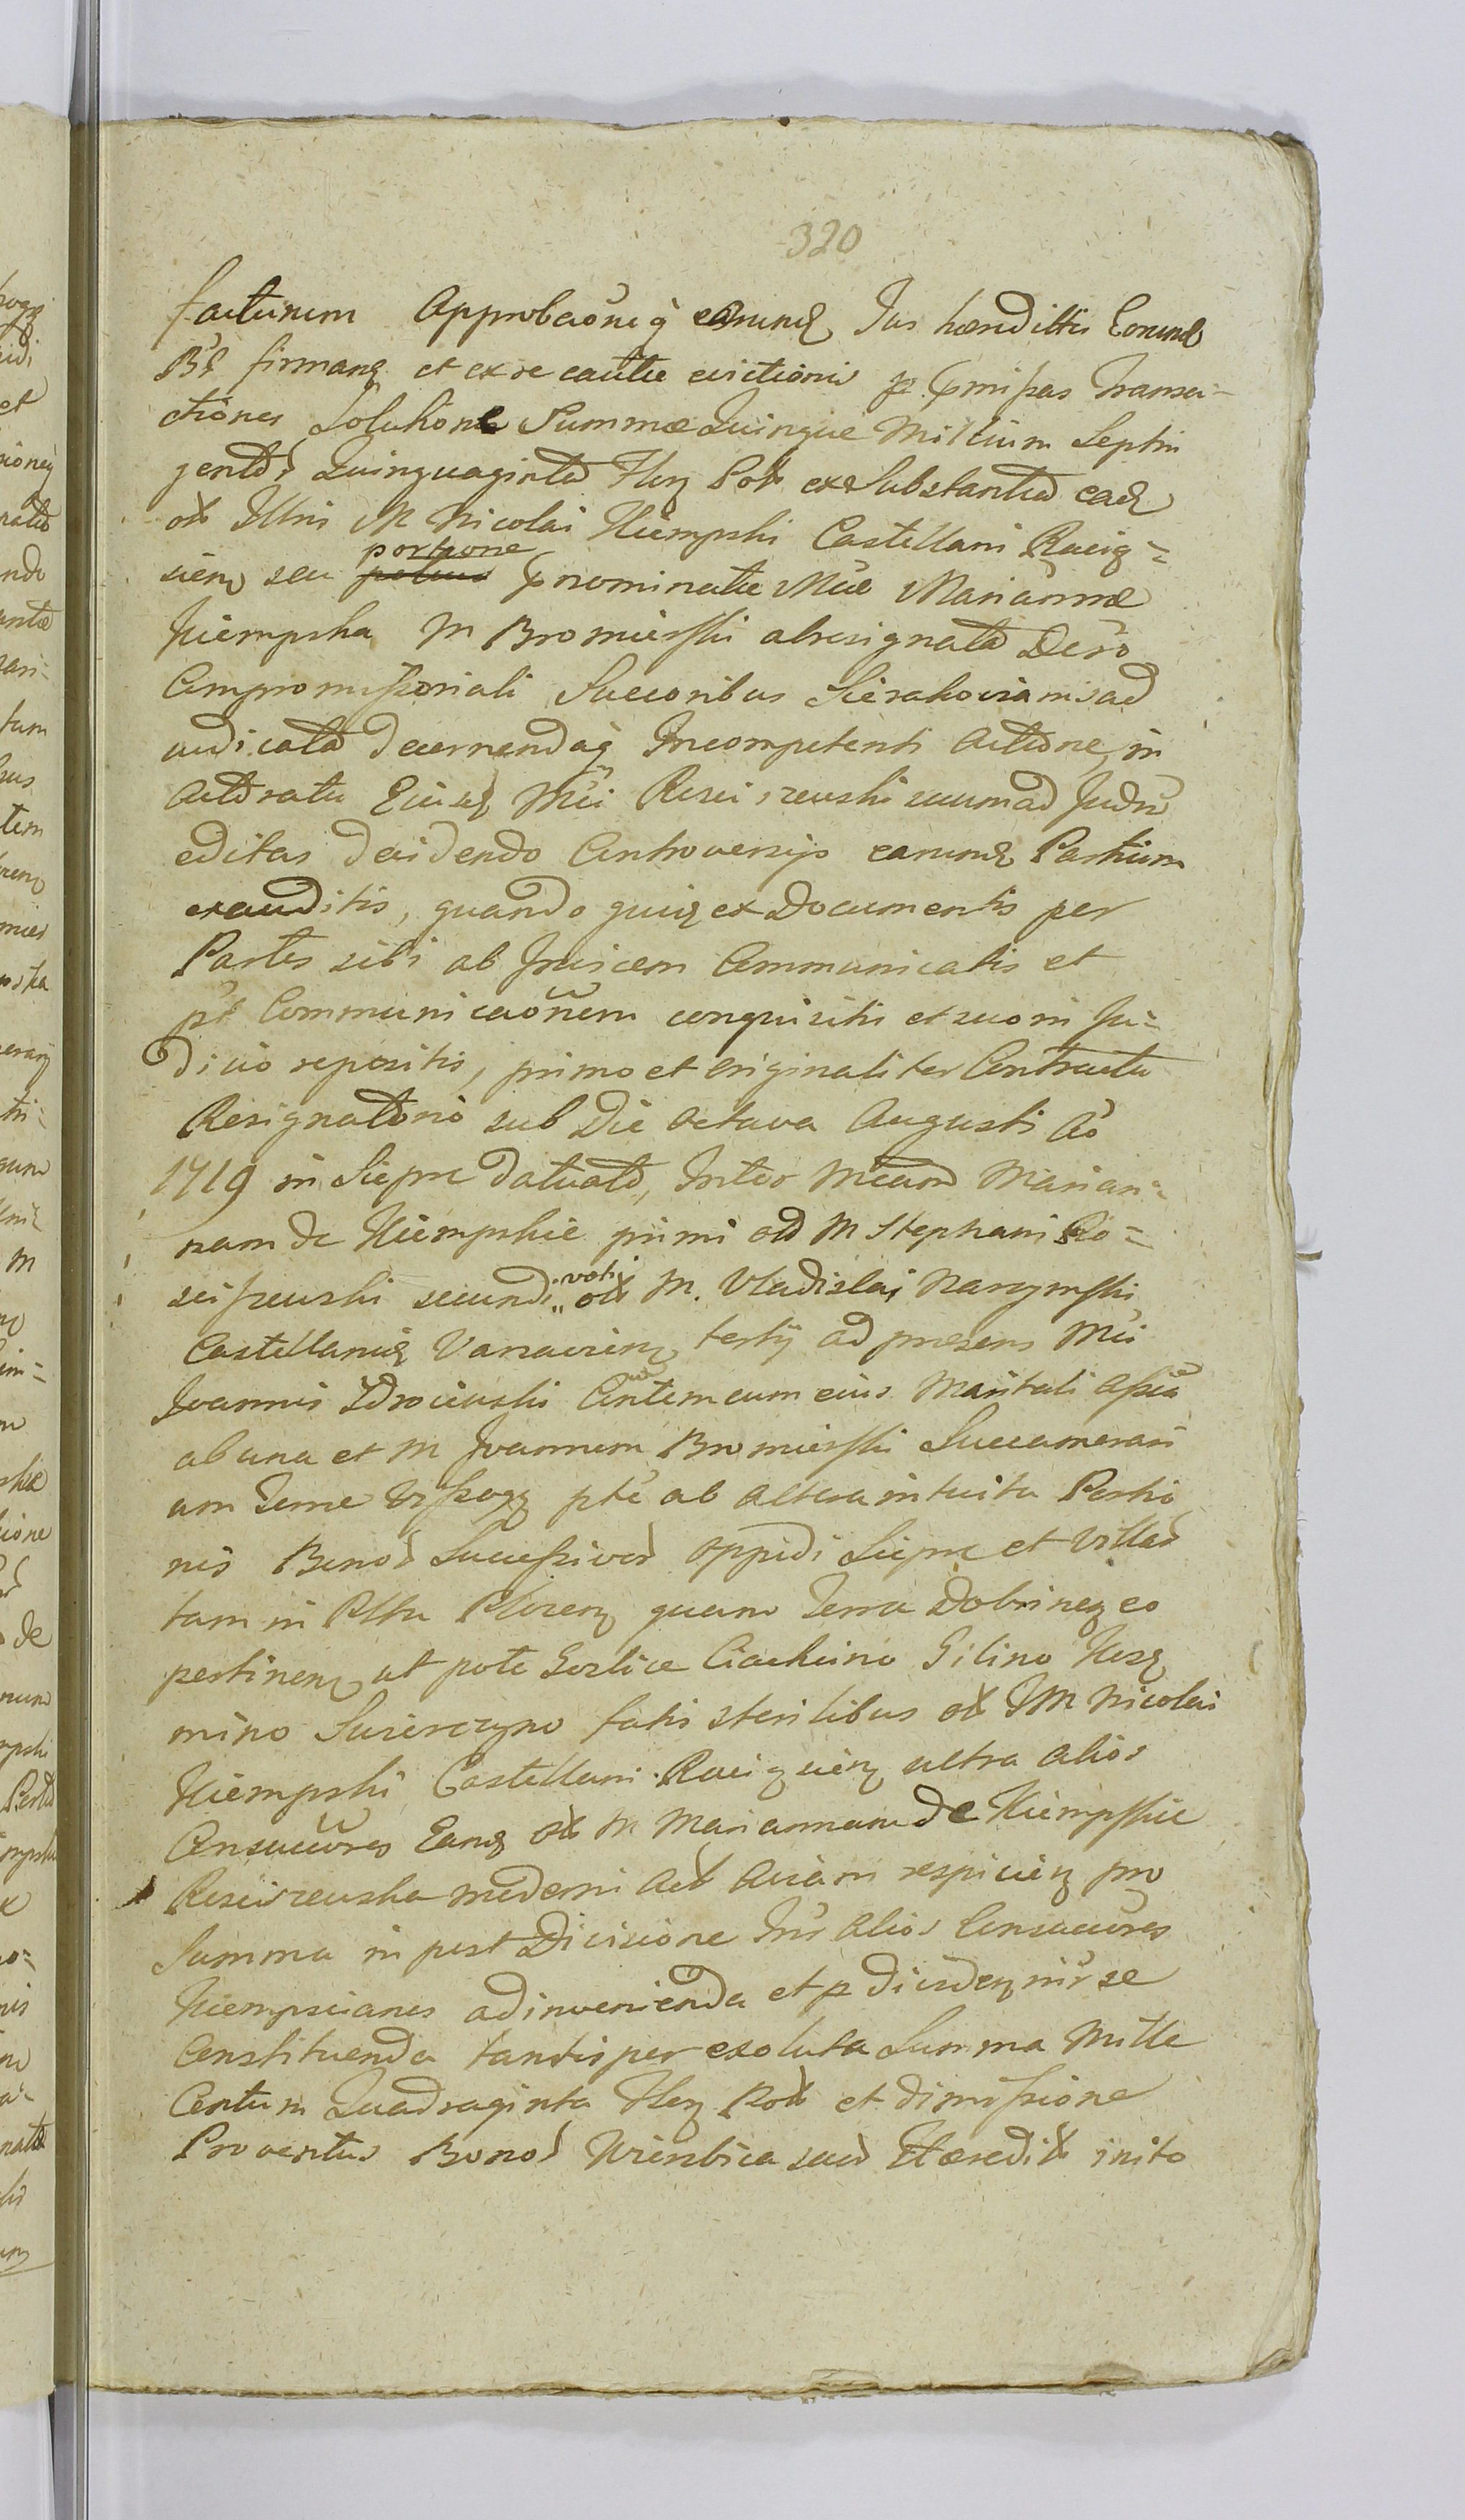 320
facturum Approbaoneq̀ earund Jus hæredittis Eorund
et ex re cautæ evictionis Transa-
ctiones Solutione Summæ Quinque Millium Septin
gentor Quinquaginta Flen Pol ex Substantia ead
ol Illris M Nicolai Kiempski Castellani Raciąz=
portione
sien seu prænominatæ Mcæ Mariannæ
Kiempska M Bromierski abresignata Decro
Compromissoriali Succoribus Sierakovianis ad
iudicata decernendaq̀ Incompetenti Actione, in
Actoratu Eiusd Mci Rosciszewski secum ad Judm
editas decidendo Controversijs earund Partium
exauditis, quando quid ex Documentis per
Partes sibi ab Invicem Communicatis et
pt Communicaonem conquisitis et suo in Ju=
dicio repositis, primo et originaliter Contractu
Resignatorio sub Die octava Augusti Ao
1719 in Siepre datuato, Inter Mcam Marian=
nam de Kiempskie primi olo M Stephani Ro=
voti
sciszewski secundi ol M. Vladislai Narzymski
Castellanid Varsavien tertij ad præsens Mci
Joannis Zdrojewski Consortem cum eius Maritali Assia
ab una et M Joannem Bromierski Succamerari
um Terræ Wyssogr pte ab altera intuitu Portio
nis Bonor Successivor Oppidi Siepre et Villar
tam in Pltu Plocen quam Terra Dobrinen eo
pertinen ut pote Gorlice Ciachcino Gilino Kos
mino Suserczyno fatis sterilibus ol IM Nicolai
Kiempski Castellani Raciązien ultra alios
Consuccres Eand ol M Mariannam de Kiempskie
Rosciszewska moderni Act Aviam respicien pro
Summa in post Divisione Inr alios Consuccres
Kiempscianos adinvenienda et p dividen inr se
Constituenda tantisper exoluta Summa Mille
Centum Quadraginta Flen Pol et dimissione
Proventus Bonor Wierzbica suor Hæredit inito